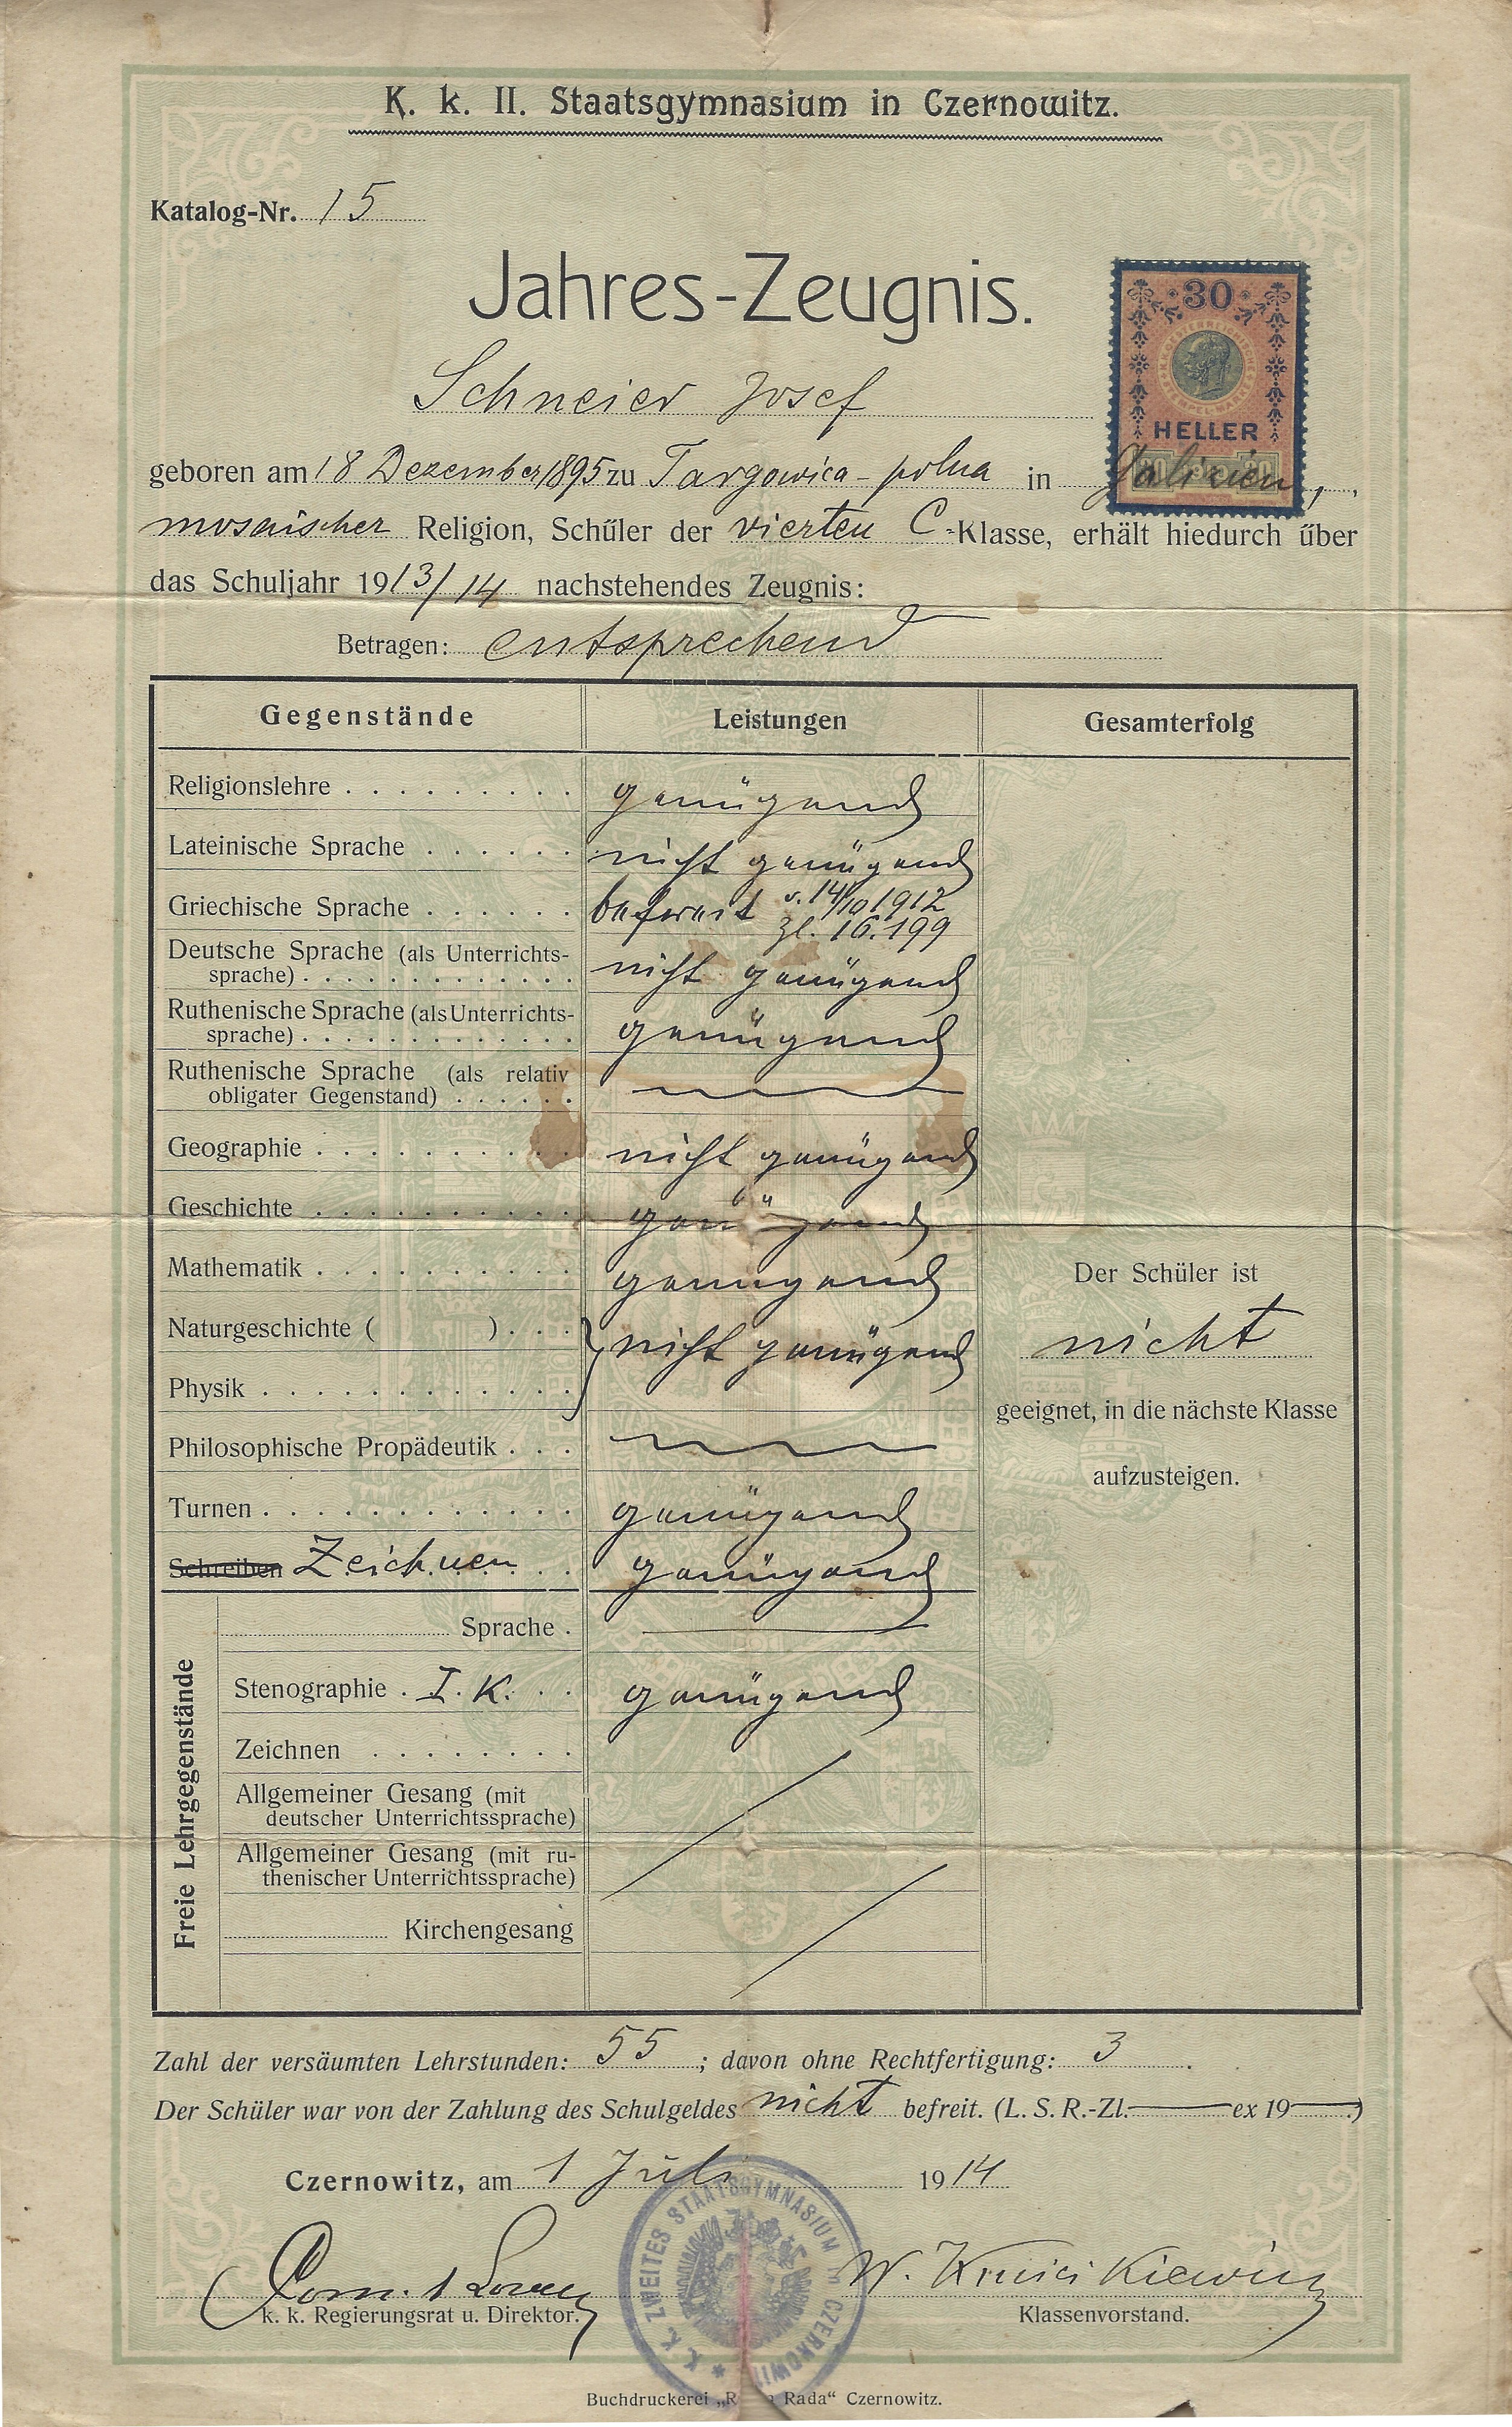 K. k. II. Staatsgymnasium in Czernowitz.
Katalog-Nr. 15
Jahres-Zeugnis.
30
HELLER
Schneier Josef
geboren am 18 Dezember 1895 zu Targowica-polna in Galizien,
mosaischer Religion, Schüler der vierten C-Klasse, erhält hiedurch über
das Schuljahr 1913/14 nachstehendes Zeugnis:
Betragen: entsprechend
Gegenstände Leistungen Gesamterfolg
Religionslehre . . . . . . . . . genügend
Lateinische Sprache . . . . . . nicht genügend
Griechische Sprache . . . . . . befreit v. 14/10 1912
Zl. 16.199
Deutsche Sprache (als Unterrichts-
sprache) . . . . . . . . . . . . . nicht genügend
Ruthenische Sprache (als Unterrichts-
sprache) . . . . . . . . . . . . . genügend
Ruthenische Sprache (als relativ
obligater Gegenstand) . . . . . .
Geographie . . . . . . . . . . nicht genügend
Geschichte . . . . . . . . . . genügend
Mathematik . . . . . . . . . . genügend
Naturgeschichte ( ) . . . nicht genügend
Physik . . . . . . . . . . . .
Philosophische Propädeutik . . .
Turnen . . . . . . . . . . . . genügend
Schreiben Zeichnen . . genügend
Der Schüler ist
nicht
geeignet, in die nächste Klasse
aufzusteigen.
Freie Lehrgegenstände
Sprache .
Stenographie . I. K. . . genügend
Zeichnen . . . . . . . .
Allgemeiner Gesang (mit
deutscher Unterrichtssprache)
Allgemeiner Gesang (mit ru-
thenischer Unterrichtssprache)
Kirchengesang
Zahl der versäumten Lehrstunden: 55 ; davon ohne Rechtfertigung: 3 .
Der Schüler war von der Zahlung des Schulgeldes nicht befreit. (L. S. R.-Zl. ex 19 .)
Czernowitz, am 1 Juli 1914
K. K. ZWEITES STAATSGYMNASIUM IN CZERNOWITZ
k. k. Regierungsrat u. Direktor.
Klassenvorstand.
Buchdruckerei „R Rada“ Czernowitz.